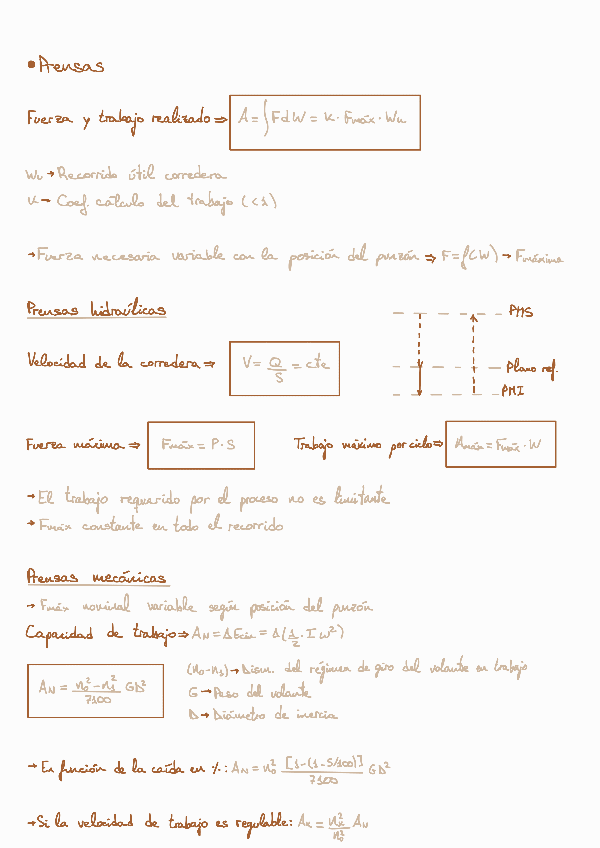 • Prensas
Fuerza y trabajo realizado ⇒ A = ∫ F dW = K · Fmáx · Wu
Wu → Recorrido útil corredera
K → Coef. cálculo del trabajo (<1)
→ Fuerza necesaria variable con la posición del punzón ⇒ F = f(W) → Fmáxima
Prensas hidraúlicas
PMS
Velocidad de la corredera ⇒ V = Q/S = cte
Plano ref.
PMI
Fuerza máxima ⇒ Fmáx = P · S
Trabajo máximo por ciclo ⇒ Amáx = Fmáx · W
→ El trabajo requerido por el proceso no es limitante
→ Fmáx constante en todo el recorrido
Prensas mecánicas
→ Fmáx nominal variable según posición del punzón
Capacidad de trabajo ⇒ AN = ΔEcin = Δ(1/2 · I ω²)
AN = (n0² − n1²)/7100 GD²
(n0 − n1) → Dism. del régimen de giro del volante en trabajo
G → Peso del volante
D → Diámetro de inercia
→ En función de la caída en %: AN = n0² [1-(1-S/100)]/7100 GD²
→ Si la velocidad de trabajo es regulable: Ax = nx²/n0² AN